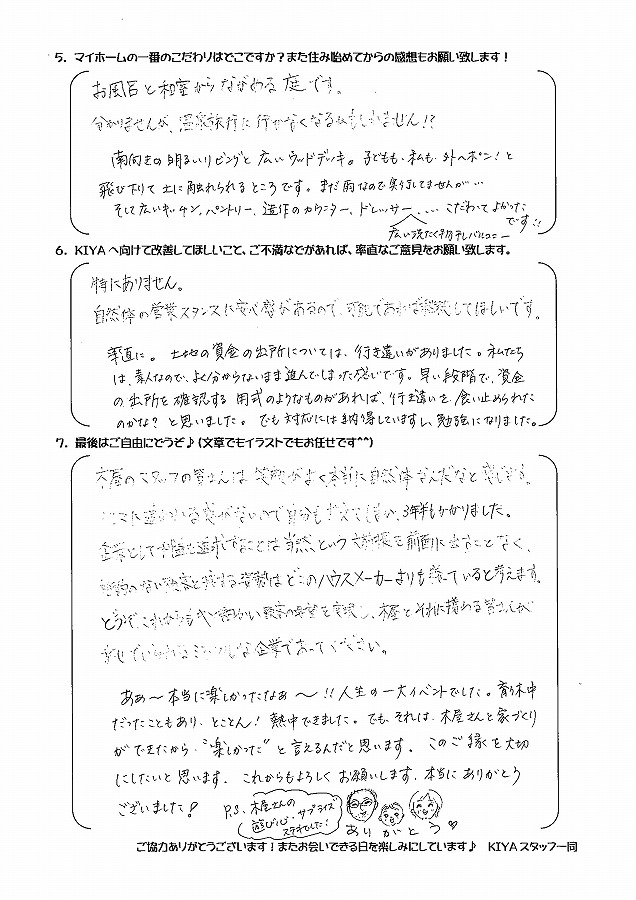 5. マイホームの一番のこだわりはどこですか？また住み始めてからの感想もお願い致します！
お風呂と和室からながめる庭です。
分かりませんが、温泉旅行に行かなくなるかもしれません!?
南向きの明るいリビングと広いウッドデッキ。子どもも、私も、外へポン！と
飛び下りて土に触れられるところです。まだ雨なので実行してませんが…
そして広いキッチン、パントリー、造作のカウンター、ドレッサー、... こだわってよかった
です!!
広い洗たく物干しバルコニー
6. KIYAへ向けて改善してほしいこと、ご不満などがあれば、率直なご意見をお願い致します。
特にありません。
自然体の営業スタンスに安心感があるので、可能であれば継続してほしいです。
率直に。土地の資金の出所については、行き違いがありました。私たち
は、素人なので、よく分からないまま進んでしまった感じです。早い段階で、資金
の出所を確認する用式のようなものがあれば、行き違いを食い止められた
のかな？と思いました。でも対応には納得していますし、勉強になりました。
7. 最後はご自由にどうぞ♪(文章でもイラストでもお任せです^^)
木屋のスタッフの皆さんは笑顔がよく本当に自然体なんだなと感じます。
自分も 3年半もかかりました。
企業として利益を追求することは当然、という大前提を前面に出すことなく、
姿勢はどこのハウスメーカーよりも優っていると考えます。
どうぞこれからも 木屋とそれに携わる皆さんが
企業であってください。
あぁ〜本当に楽しかったなぁ〜!! 人生の一大イベントでした。育休中
だったこともあり、とことん！熱中できました。でも、それは、木屋さんと家づくり
ができたから、"楽しかった"と言えるんだと思います。このご縁を大切
にしたいと思います。これからもよろしくお願いします。本当にありがとう
ございました！
P.S. 木屋さんの
遊び心・サプライズ
ステキでした！
ありがとう♡
ご協力ありがとうございます！またお会いできる日を楽しみにしています♪ KIYAスタッフ一同